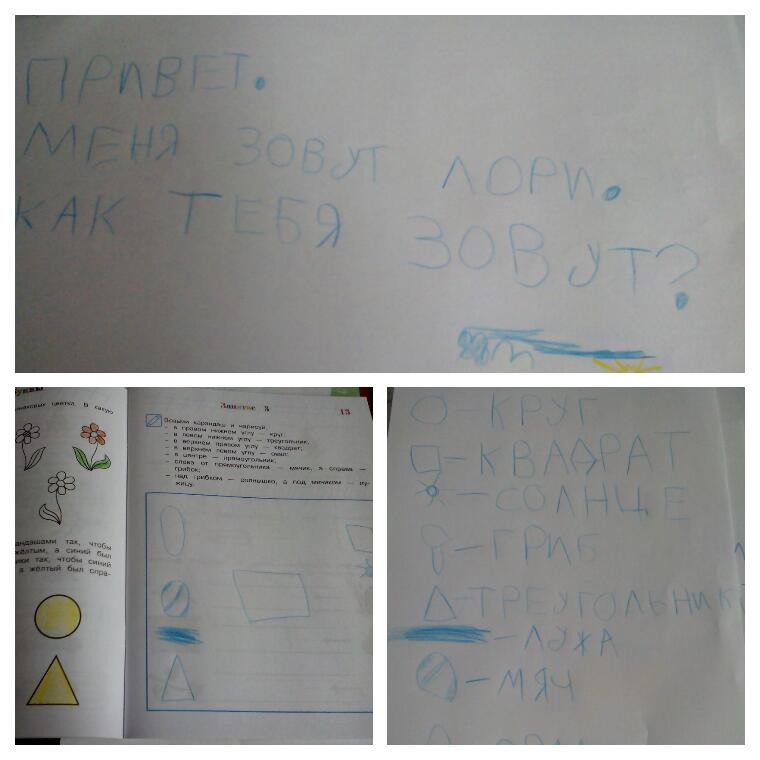 ПРИВЕТ.
МЕНЯ ЗОВУТ ЛОРИ.
КАК ТЕБЯ ЗОВУТ?
цветка. В какую
андашами так, чтобы
жёлтым, а синий был
так, чтобы синий
а жёлтый был спра-
Занятие 3
13
Возьми карандаш и нарисуй:
- в правом нижнем углу — круг;
- в левом нижнем углу — треугольник;
- в верхнем правом углу — квадрат;
- в верхнем левом углу — овал;
- в центре — прямоугольник;
- слева от прямоугольника — мячик, а справа —
грибок;
- над грибком — солнышко, а под мячиком — лу-
жицу.
- КРУГ
- КВАДРАТ
- СОЛНЦЕ
- ГРИБ
- ТРЕУГОЛЬНИК
- ЛУЖА
- МЯЧ